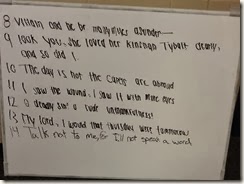 8 Villain and he be many miles asunder—
9 look you, she loved her kinsman Tybalt dearly,
and so did I.
10 The day is hot the Capels are abroad
11 I saw the wound, I saw it with mine eyes
12 O deadly sin! O rude unthankfulness!
13 My lord, I would that thursday were tomorrow
14 Talk not to me, for I'll not speak a word